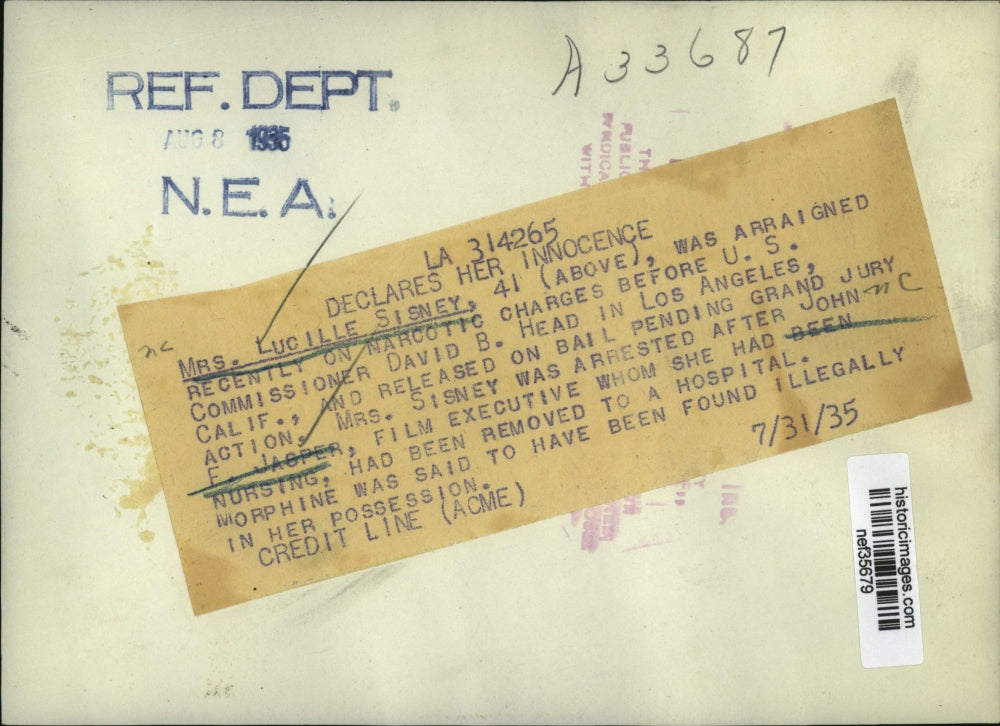 REF. DEPT.
AUG 8 1935
N.E.A.
A33687
LA 314265
DECLARES HER INNOCENCE
MRS. LUCILLE SISNEY, 41 (ABOVE), WAS ARRAIGNED
RECENTLY ON NARCOTIC CHARGES BEFORE U. S.
COMMISSIONER DAVID B. HEAD IN LOS ANGELES,
CALIF., AND RELEASED ON BAIL PENDING GRAND JURY
ACTION. MRS. SISNEY WAS ARRESTED AFTER JOHN
F. JASPER, FILM EXECUTIVE WHOM SHE HAD BEEN
NURSING, HAD BEEN REMOVED TO A HOSPITAL.
MORPHINE WAS SAID TO HAVE BEEN FOUND ILLEGALLY
IN HER POSSESSION.
CREDIT LINE (ACME)
7/31/35
nc
nc
TH
PUBLIC
SYNDICA
WITH
INC.
historicimages.com
nef35679